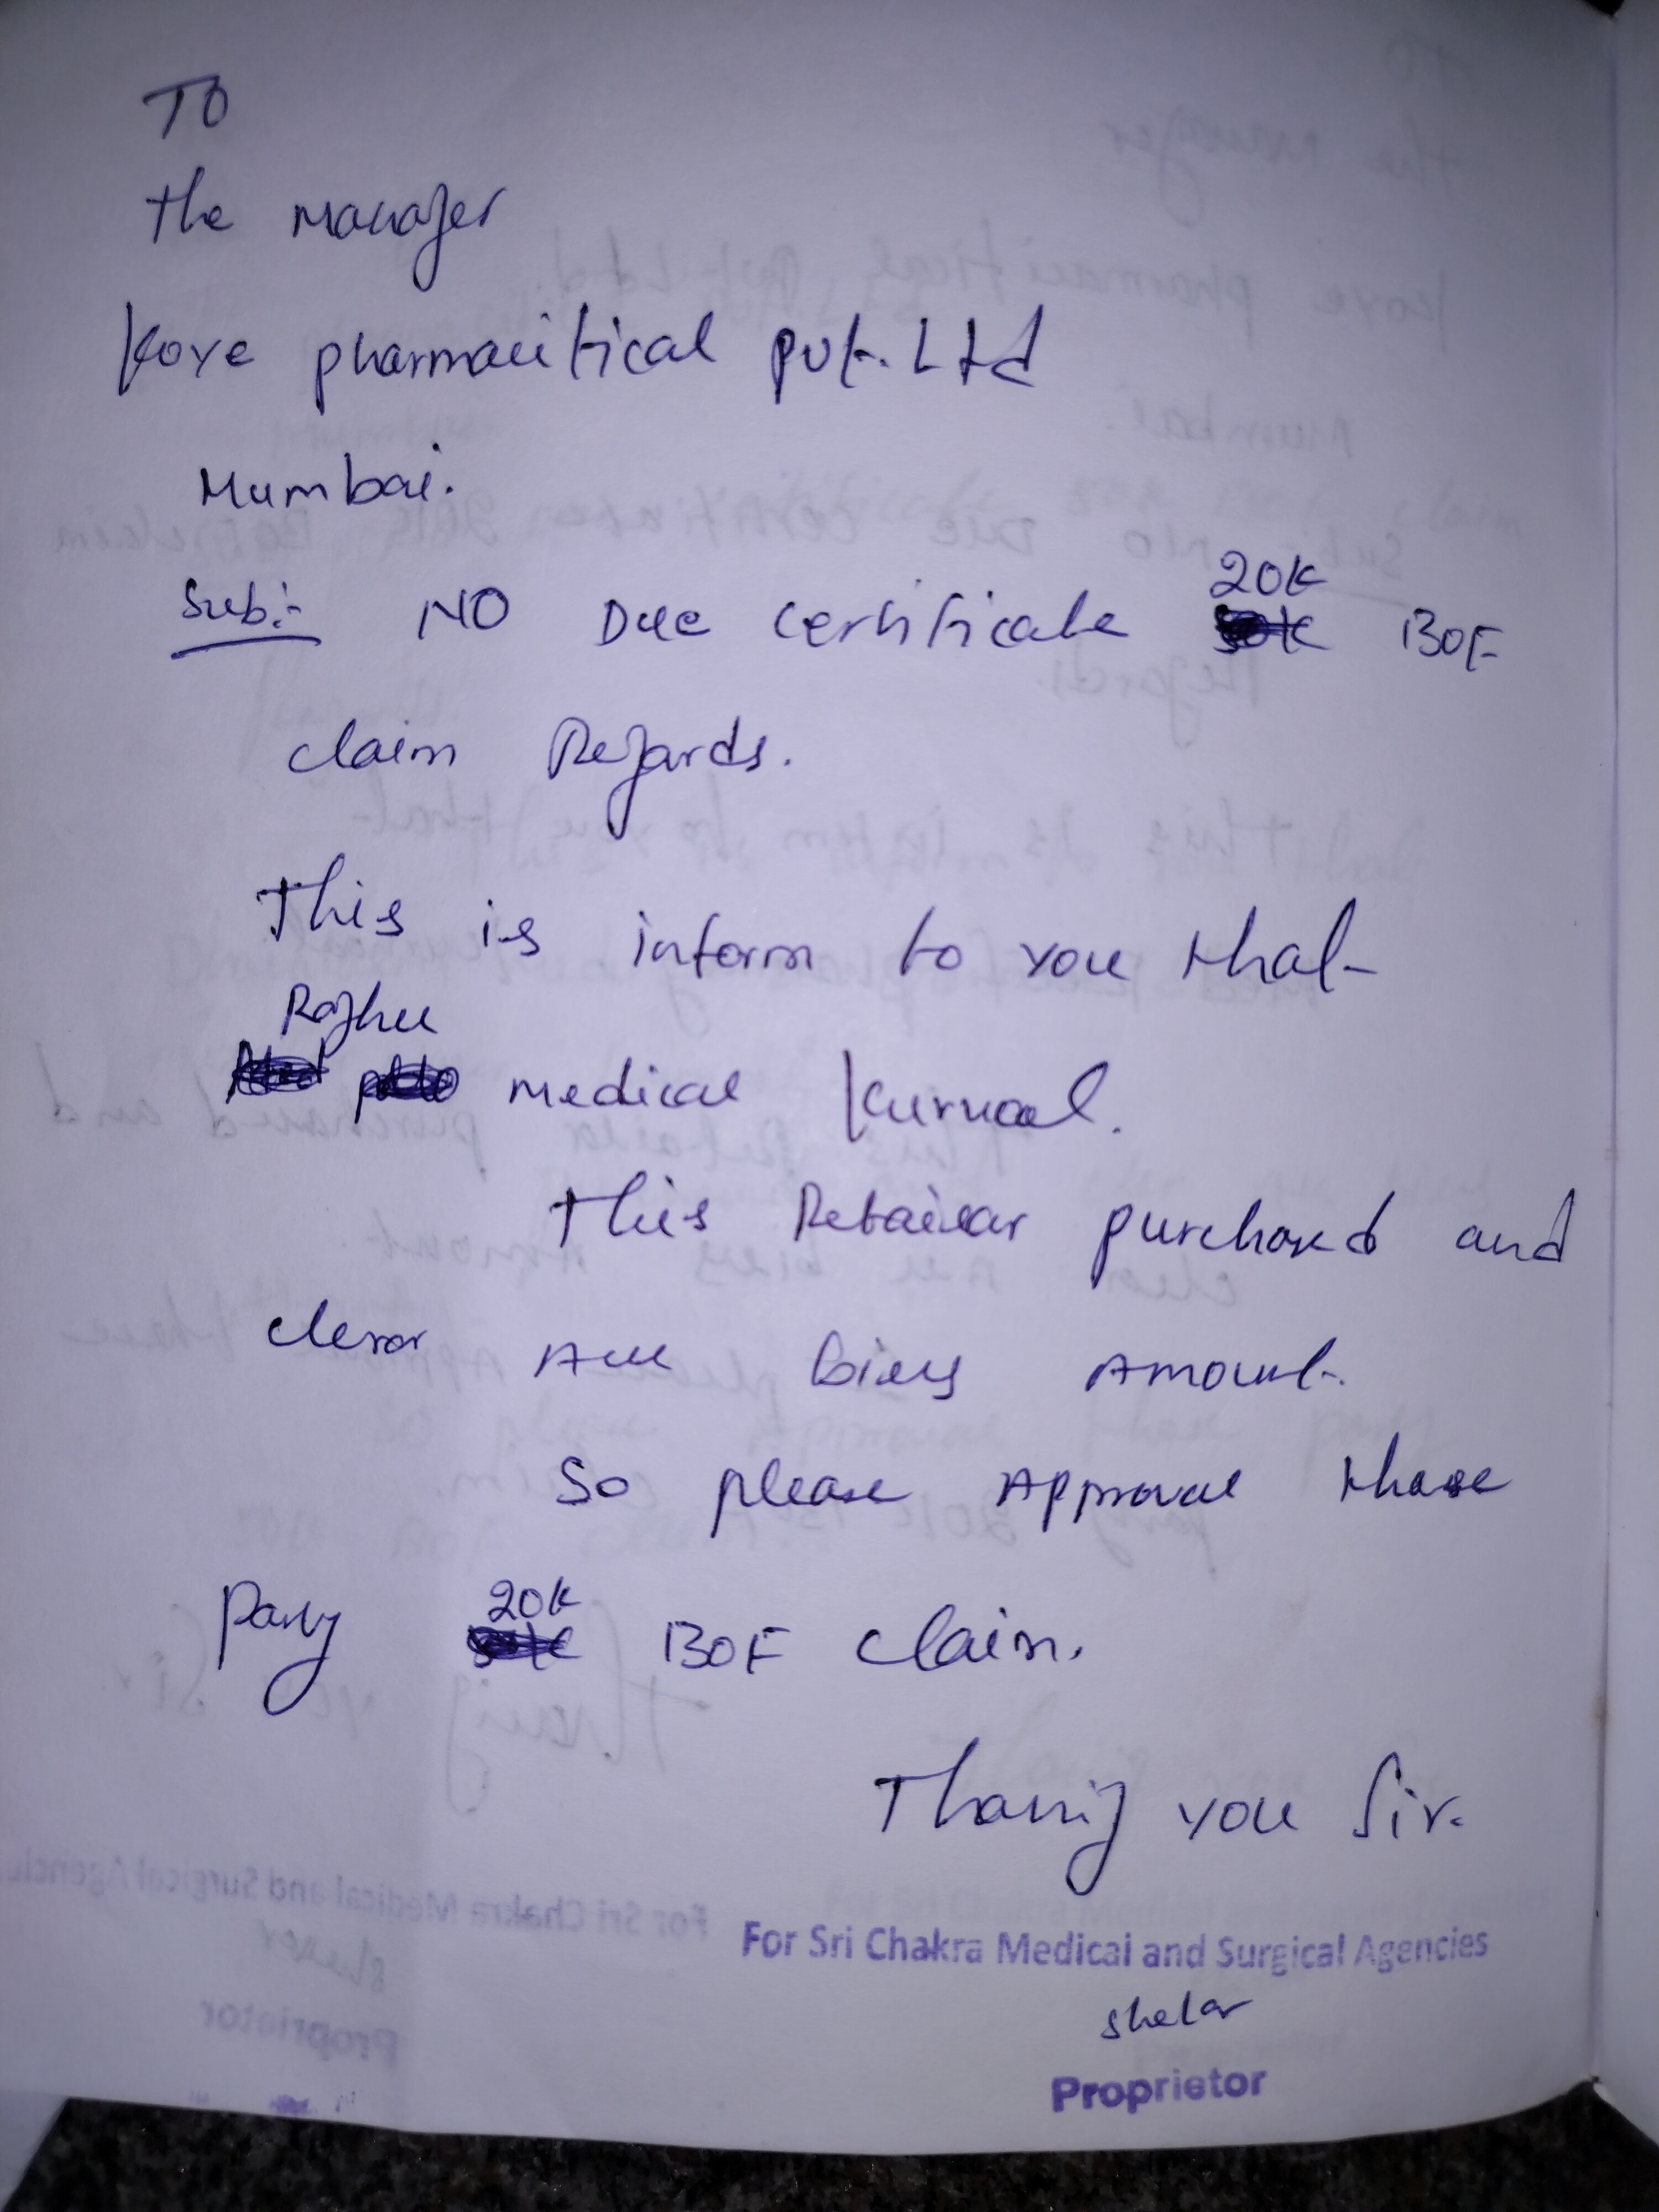 TO
the manager
Koye pharmacitical pvt. Ltd
Mumbai.
Sub:- NO Due certificate 20K BOE
claim Regards.
This is inform to you that
Raghu
medical Kurnool.
This Retailar purchased and
clear All bills Amount.
So please Approval those
party 20K BOE claim.
Thanig you Sir.
For Sri Chakra Medical and Surgical Agencies
Proprietor